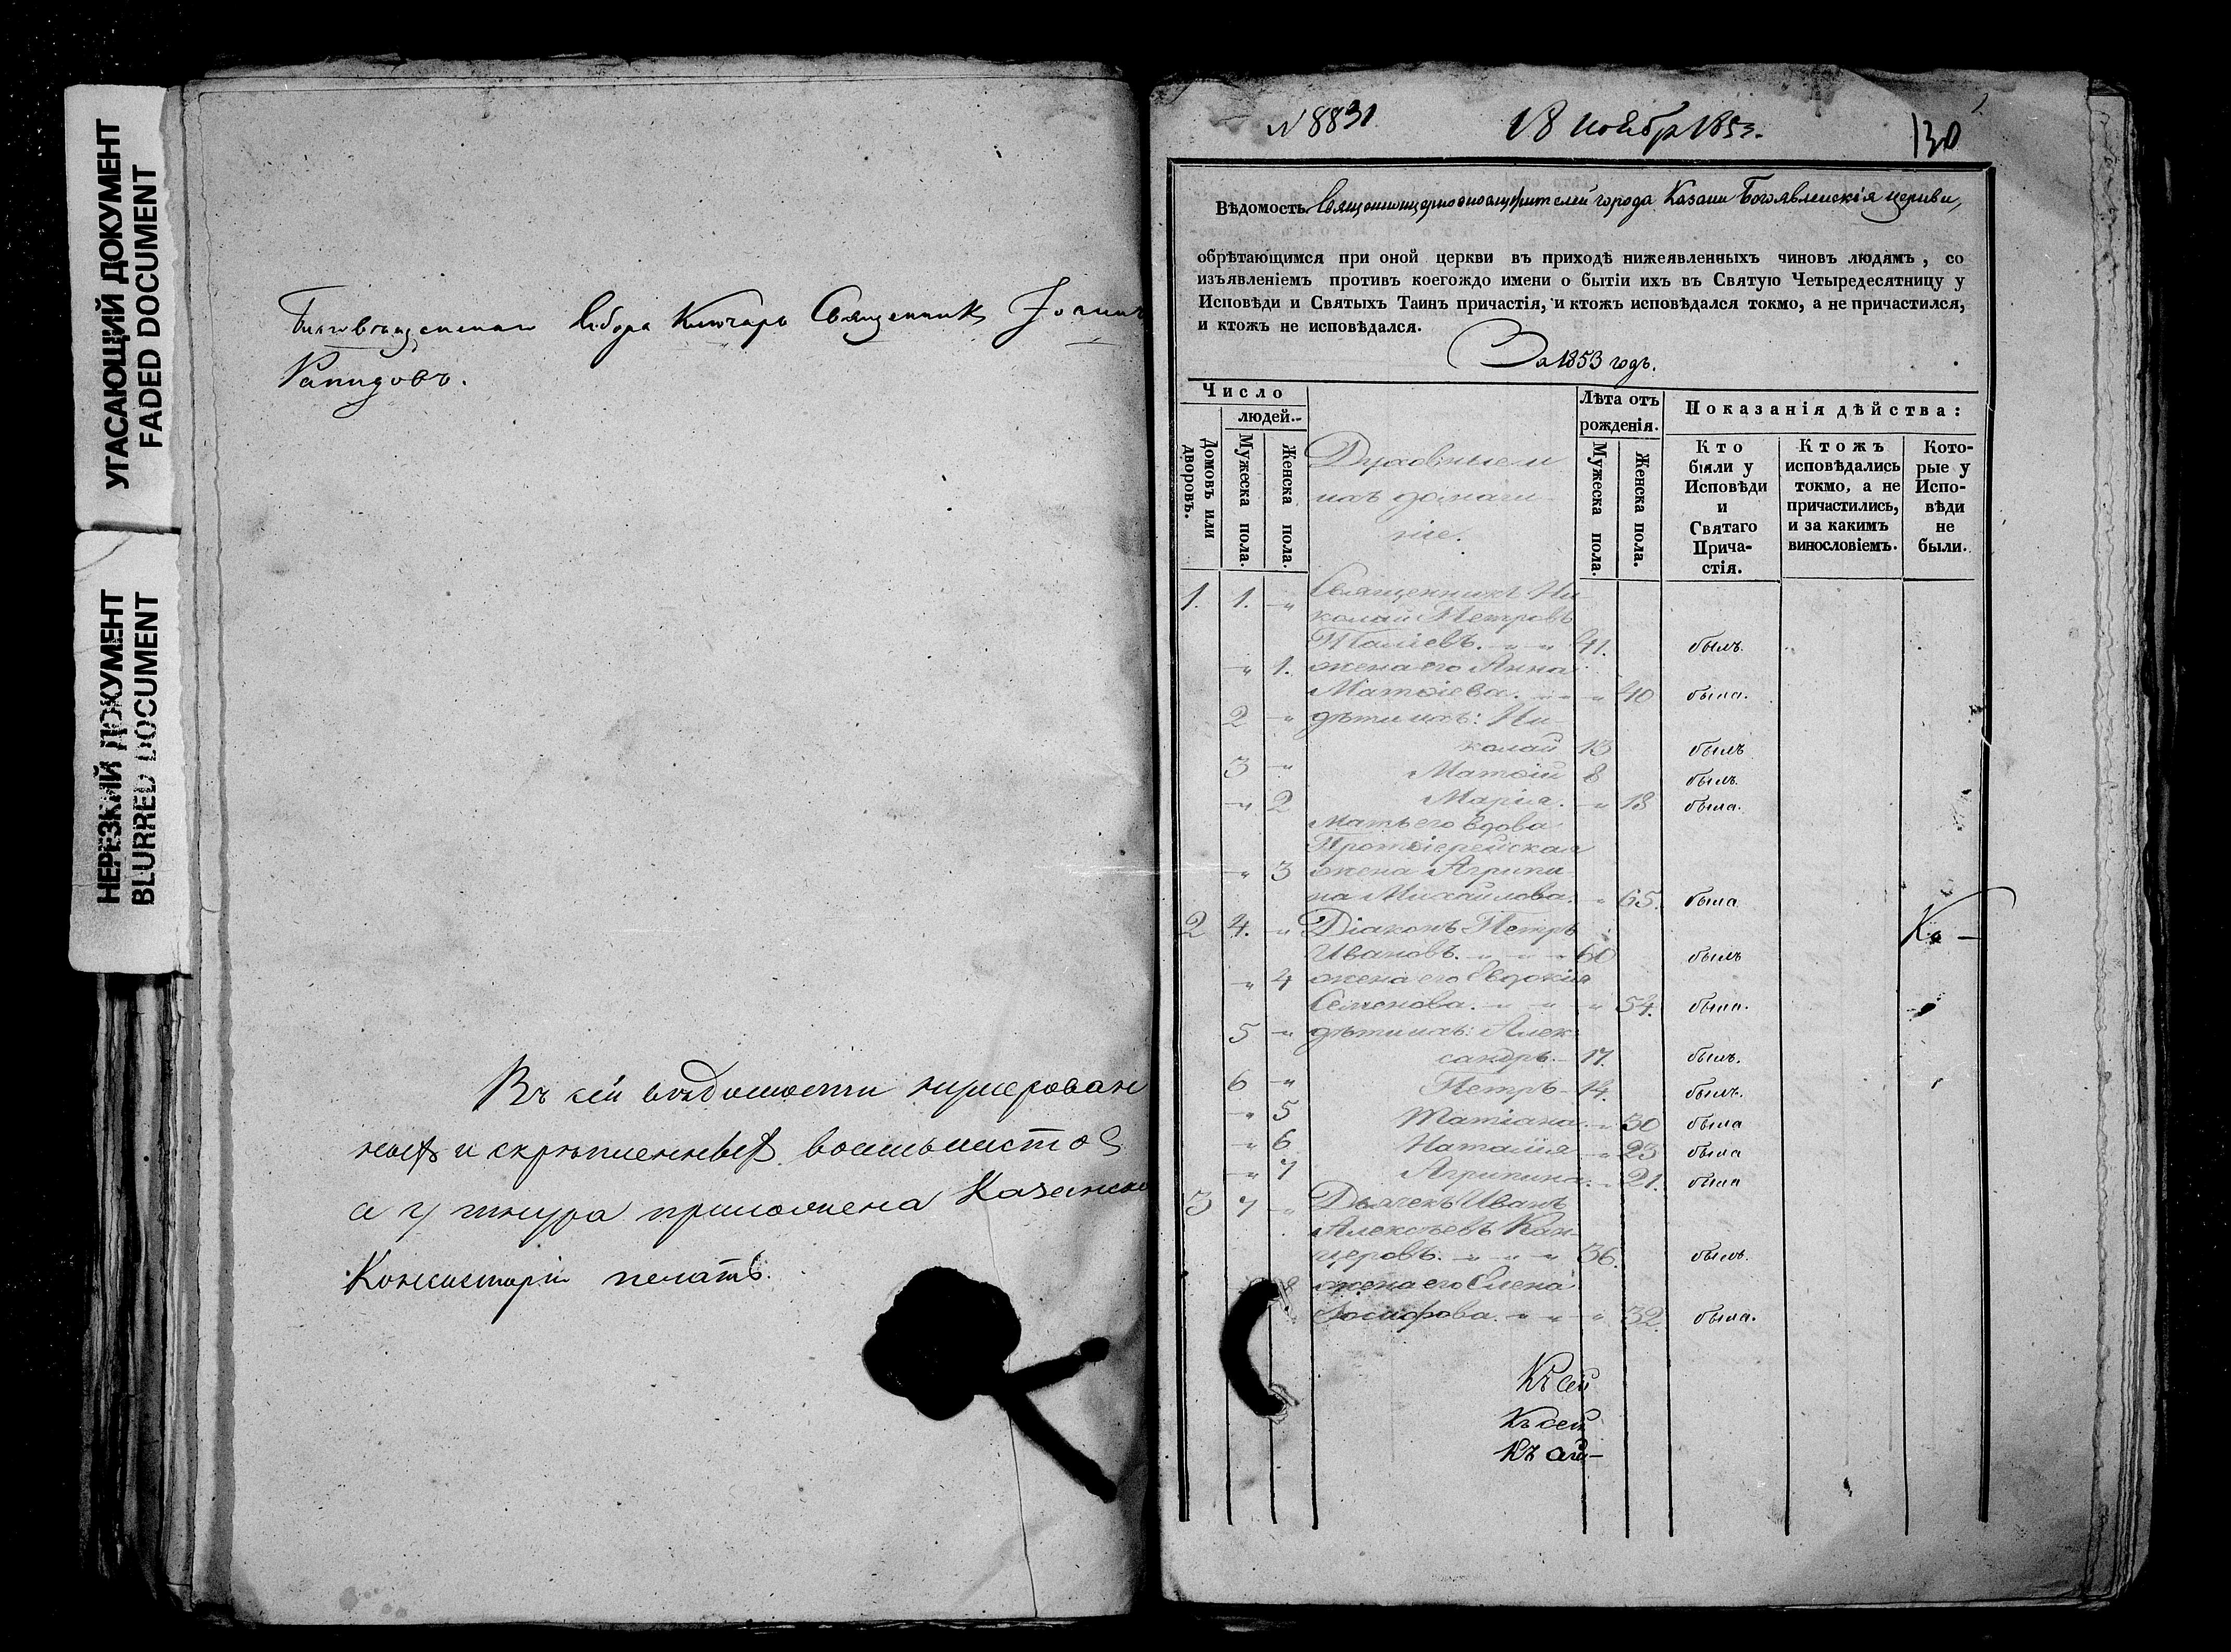 УГАСАЮЩИЙ ДОКУМЕНТ
FADED DOCUMENT
НЕРЕЗКИЙ ДОКУМЕНТ
BLURRED DOCUMENT
Благовѣщенскаго Собора Ключарь Священникъ
Рапидовъ.
Въ сей вѣдомости нумерован
ныхъ и скрѣпленныхъ восемь листовъ
а у шнура приложена Казанско
Консисторіи печать.
N 8831 18 Ноября 1853. 130
Вѣдомость города Казани Богоявленскія церкви,
обрѣтающимся при оной церкви въ приходѣ нижеявленныхъ чиновъ людямъ, со
изъявленіемъ противъ коегождо имени о бытіи ихъ въ Святую Четыредесятницу у
Исповѣди и Святыхъ Таинъ причастія, и ктожъ исповѣдался токмо, а не причастился,
и ктожъ не исповѣдался.
За 1853 годъ.
Число
людей.
Домовъ или дворовъ.
Мужеска пола.
Женска пола.
Духовные и
ихъ домаш-
ніе.
Лѣта отъ
рожденія.
Мужеска пола.
Женска пола.
Показанія дѣйства:
Кто
были у
Исповѣди
и
Святаго
Прича-
стія.
Ктожъ
исповѣдались
токмо, а не
причастились,
и за какимъ
винословіемъ.
Кото-
рые у
Испо-
вѣди
не
были.
1. 1. " Священникъ Ни-
колай Петровъ
41. былъ.
" 1. жена его Анна
Матѳіева. " 40 была.
2 " дѣти ихъ: Ни-
колай 13 былъ
3 " Матѳій 8 былъ.
" 2 Марія. " 18 была.
Мать его вдова
Протоіерейская
" 3 жена Агрипи-
на Михайлова. " 65. была
2 4. " Діаконъ Петръ
Ивановъ. 60 былъ
" 4 жена его Евдокія
Семенова. " 54. была.
5 " дѣти ихъ: Алек-
сандръ. 17. былъ.
6 " Петръ 14. былъ.
" 5 Татіана. " 30 была
" 6 Наталія " 23 была
" 7 Агрипина. " 21. была
3 7 " Дьячекъ Иванъ
Алексѣевъ Кан-
церовъ. 36. былъ.
8 жена его Елена
Іосифова. " 32. была.
Ка-
Къ сей
Къ сей
Къ сей-